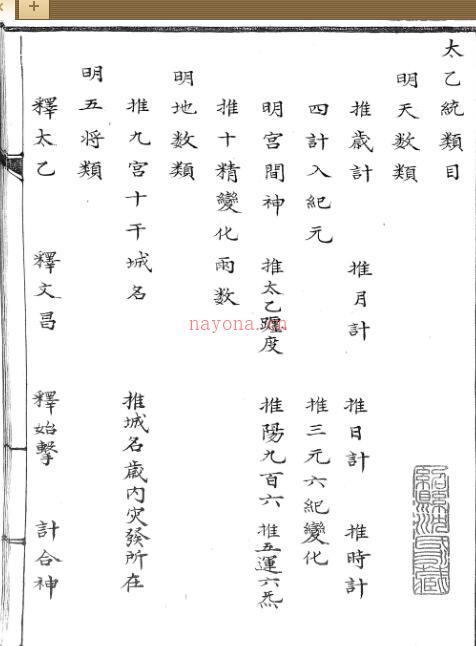 太乙統類目
明天數類
推歲計 推月計 推日計 推時計
四計入紀元 推三元六紀變化
明宮間神 推太乙躔度 推陽九百六 推五運六炁
推十精變化雨数
明地数類
推九宮十干城名 推城名歲內灾發所在
明五将類
釋太乙 釋文昌 釋始擊 計合神
nayona.cn